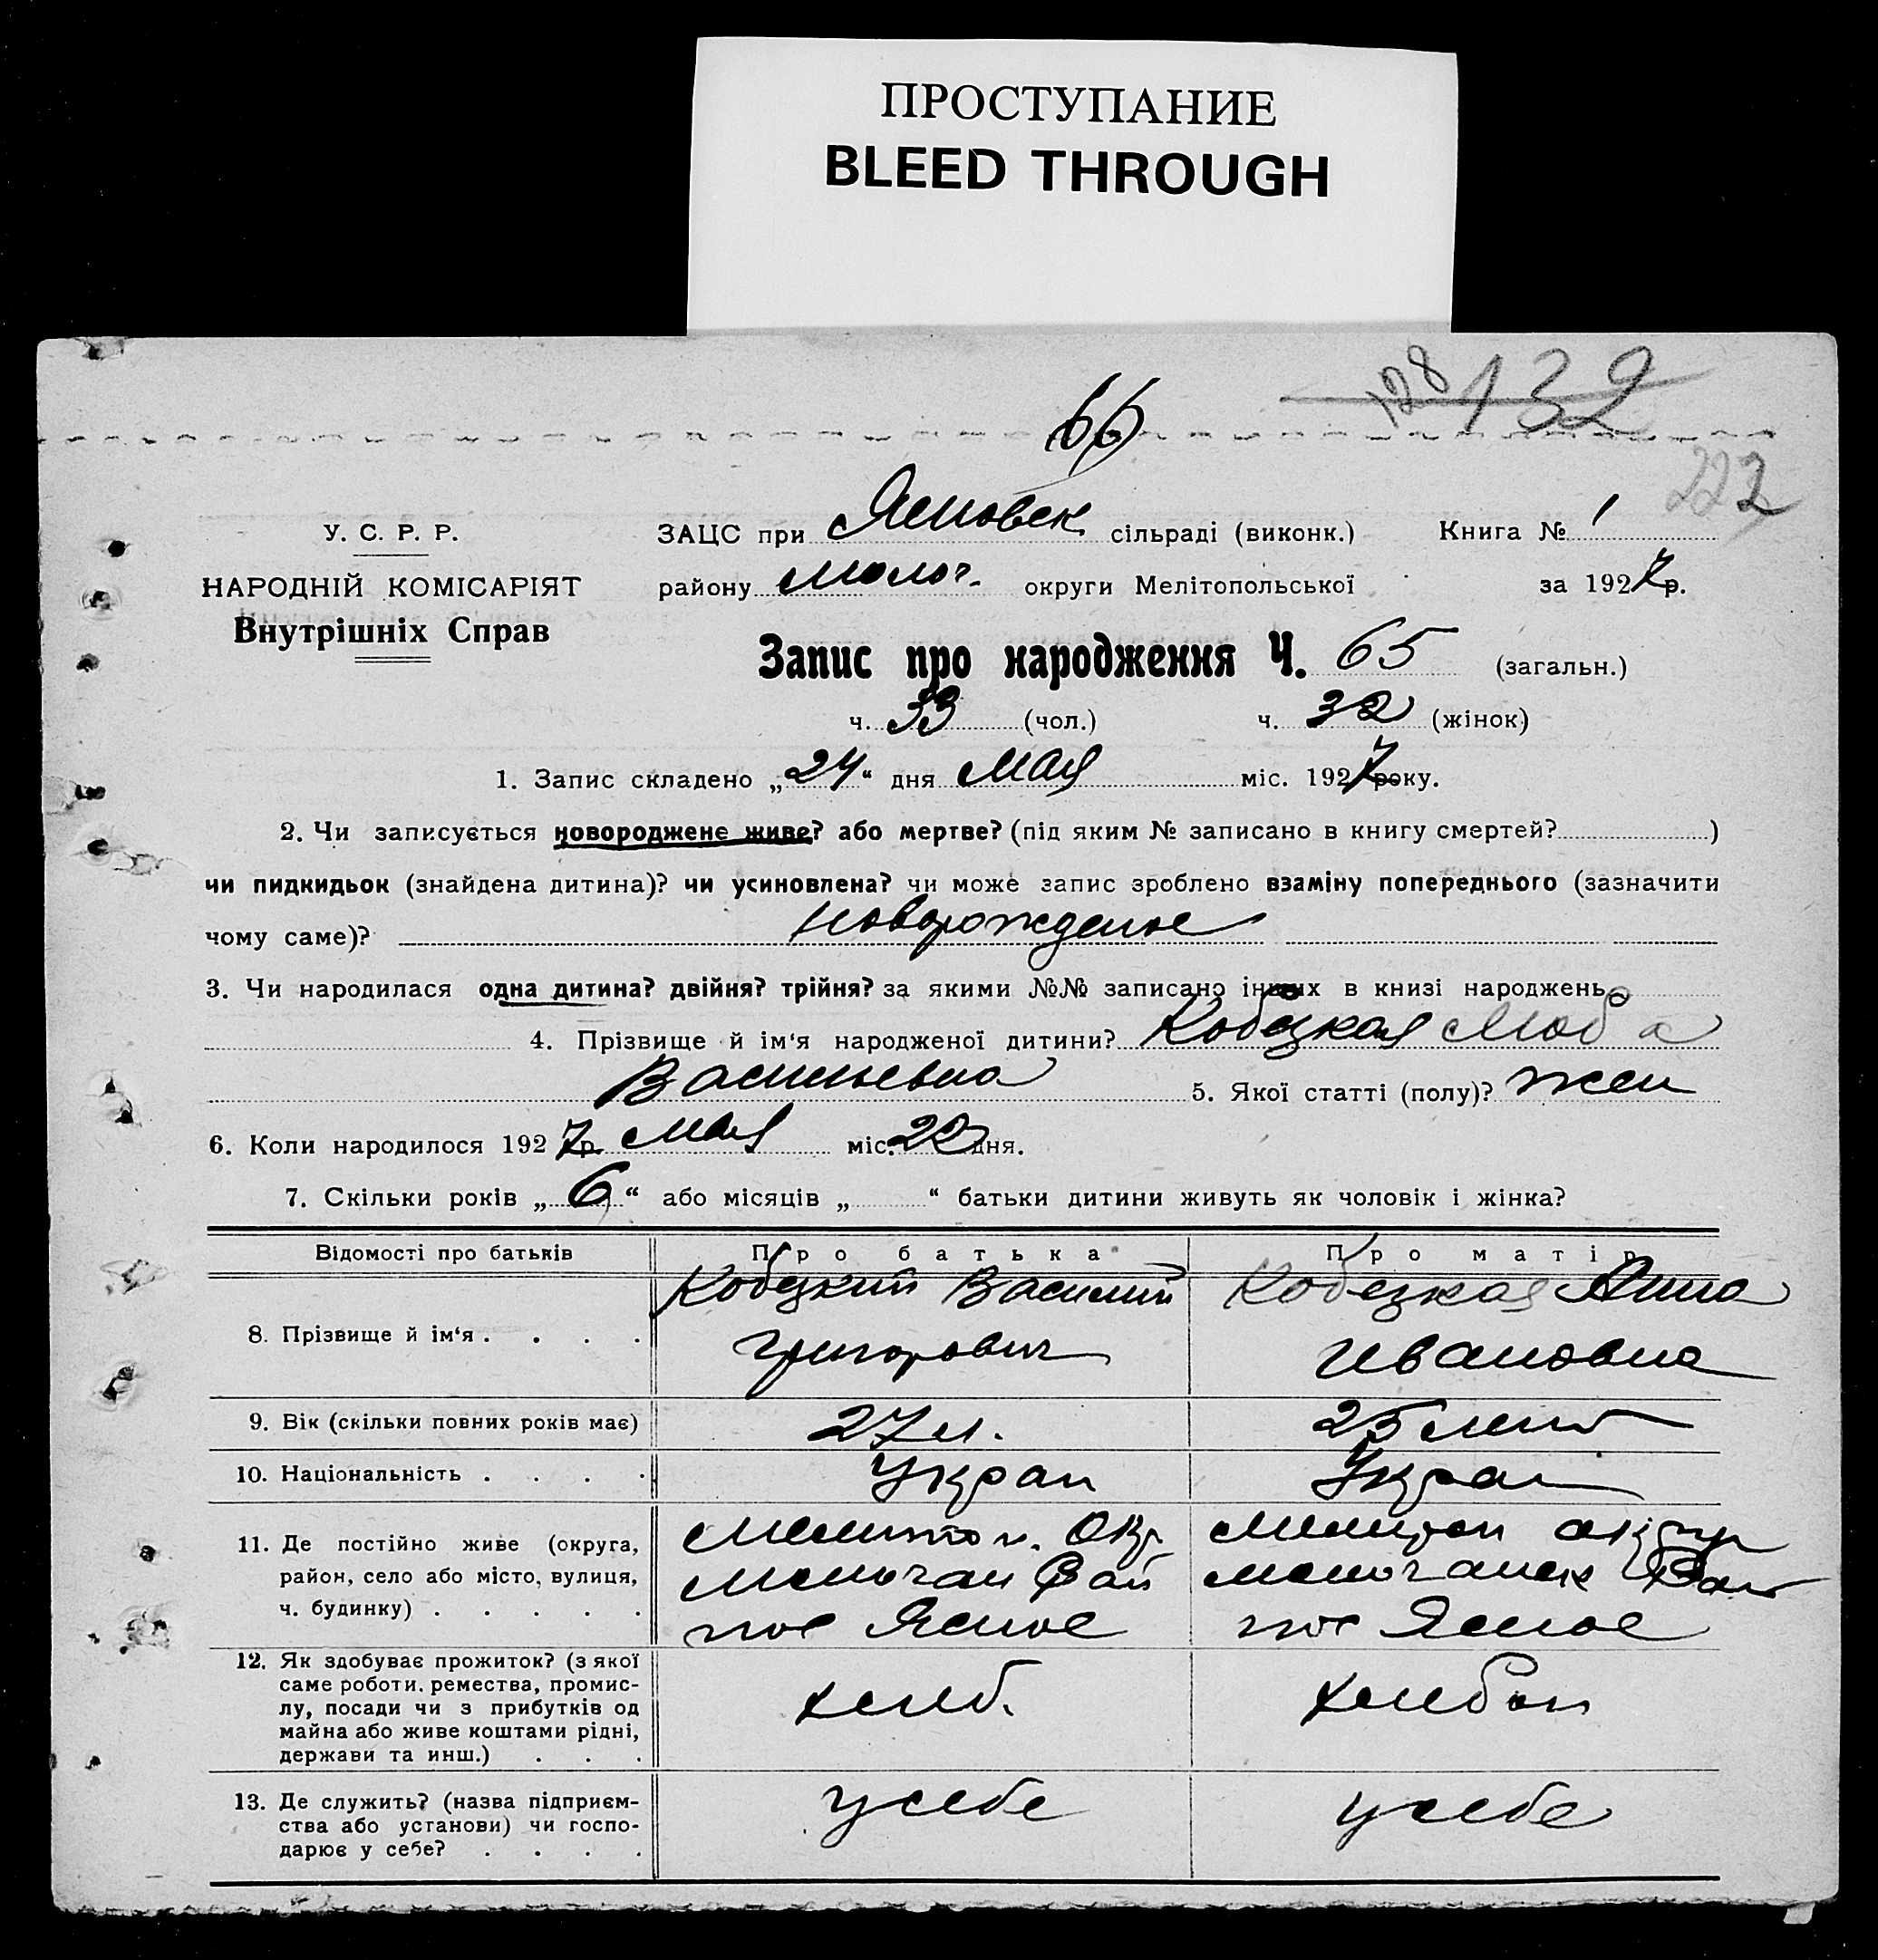 ПРОСТУПАНИЕ
BLEED THROUGH
128 132
66
222
У. С. Р. Р.
НАРОДНІЙ КОМІСАРІЯТ
Внутрішніх Справ
ЗАЦС при Ясновск сільраді (виконк.) Книга № 1
району Молоч. округи Мелітопольської за 1927 р.
Запис про народження Ч. 65 (загальн.)
ч. 33 (чол.) ч. 32 (жінок)
1. Запис складено „24“ дня мая міс. 1927 року.
2. Чи записується новороджене живе? або мертве? (під яким № записано в книгу смертей? )
чи пидкидьок (знайдена дитина)? чи усиновлена? чи може запис зроблено взаміну попереднього (зазначити
чому саме)? новорожденое
3. Чи народилася одна дитина? двійня? трійня? за якими №№ записано інших в книзі народжень
4. Прізвище й ім‘я народженої дитини? Кобецкая
Васильевна 5. Якої статті (полу)? жен
6. Коли народилося 1927 р. мая міс. 22 дня.
7. Скільки років „6“ або місяців „ “ батьки дитини живуть як чоловік і жінка?
Відомості про батьків Про батька Про матір
8. Прізвище й ім‘я . . . . Кобецкий Василий Григорович Кобецкая Анна Ивановна
9. Вік (скільки повних років має) 27 л. 25 лет
10. Національність . . . . Украи Украи
11. Де постійно живе (округа, район, село або місто, вулиця, ч. будинку) . . . . . Мелитоп. Окр. Молочан Рай пос Ясное Молочанск пос Ясное
12. Як здобуває прожиток? (з якої
саме роботи, ремества, промис-
лу, посади чи з прибутків од
майна або живе коштами рідні,
держави та инш.) . . . хлеб. хлебоп
13. Де служить? (назва підприєм-
ства або установи) чи госпо-
дарює у себе? . . . . у себе у себе